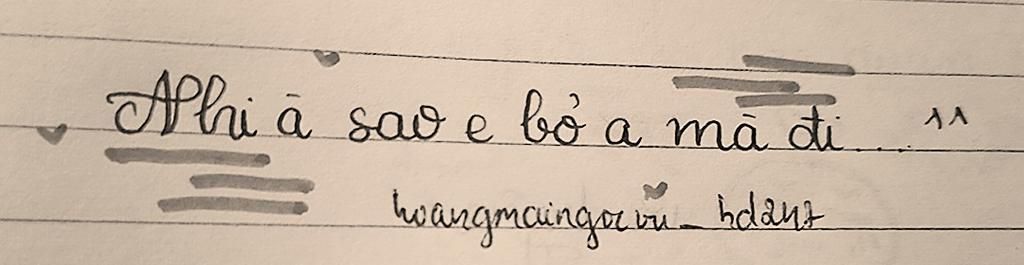 Nhi ā sao e bỏ a mā đi.... ^^
hoangmaingocvũ_hd2k7